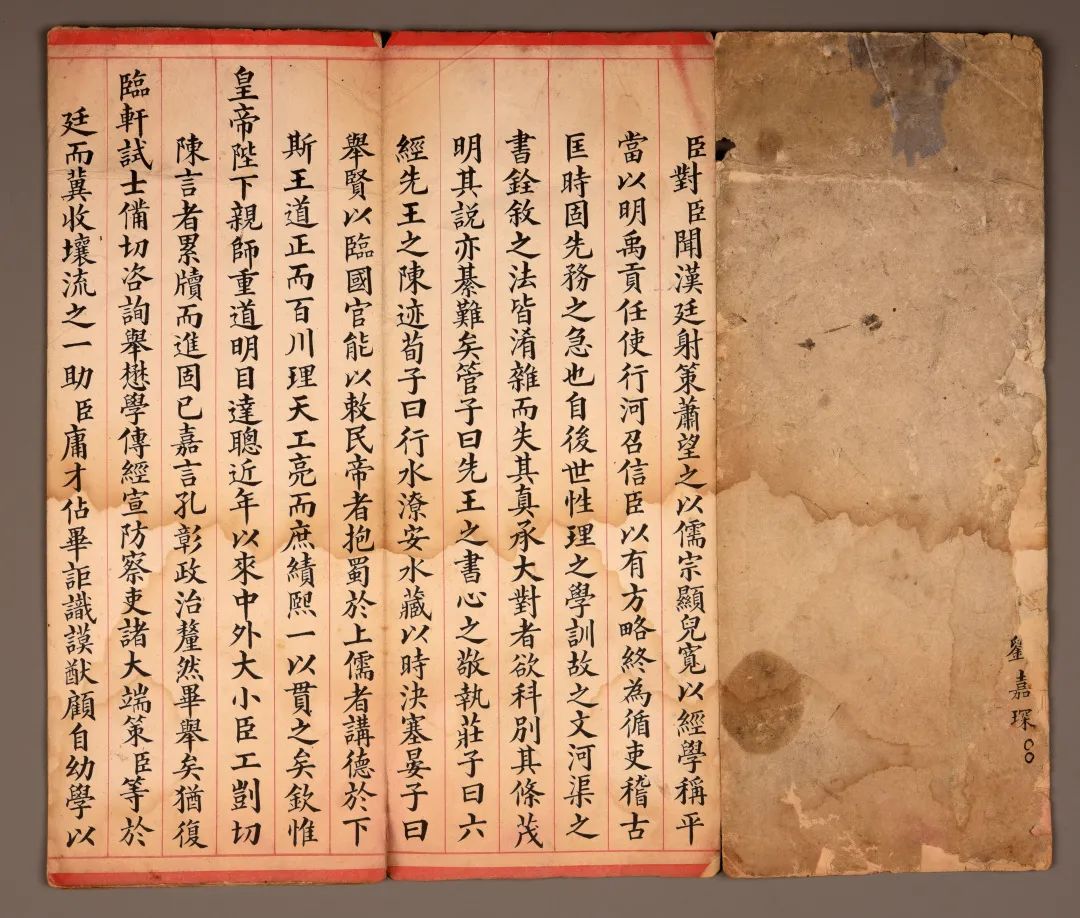 劉嘉琛
臣對臣聞漢廷射策蕭望之以儒宗顯兒寬以經學稱平
當以明禹貢任使行河召信臣以有方略終為循吏稽古
匡時固先務之急也自後世性理之學訓故之文河渠之
書銓敘之法皆淆雜而失其真承大對者欲科別其條茂
明其説亦綦難矣管子曰先王之書心之敬執莊子曰六
經先王之陳迹荀子曰行水潦安水藏以時決塞晏子曰
舉賢以臨國官能以敕民帝者抱蜀於上儒者講德於下
斯王道正而百川理天工亮而庶績熙一以貫之矣欽惟
皇帝陛下親師重道明目達聰近年以來中外大小臣工剴切
陳言者累牘而進固已嘉言孔彰政治釐然畢舉矣猶復
臨軒試士備切咨詢舉懋學傳經宣防察吏諸大端策臣等於
廷而冀收壤流之一助臣庸才佔畢詎識謨猷顧自幼學以